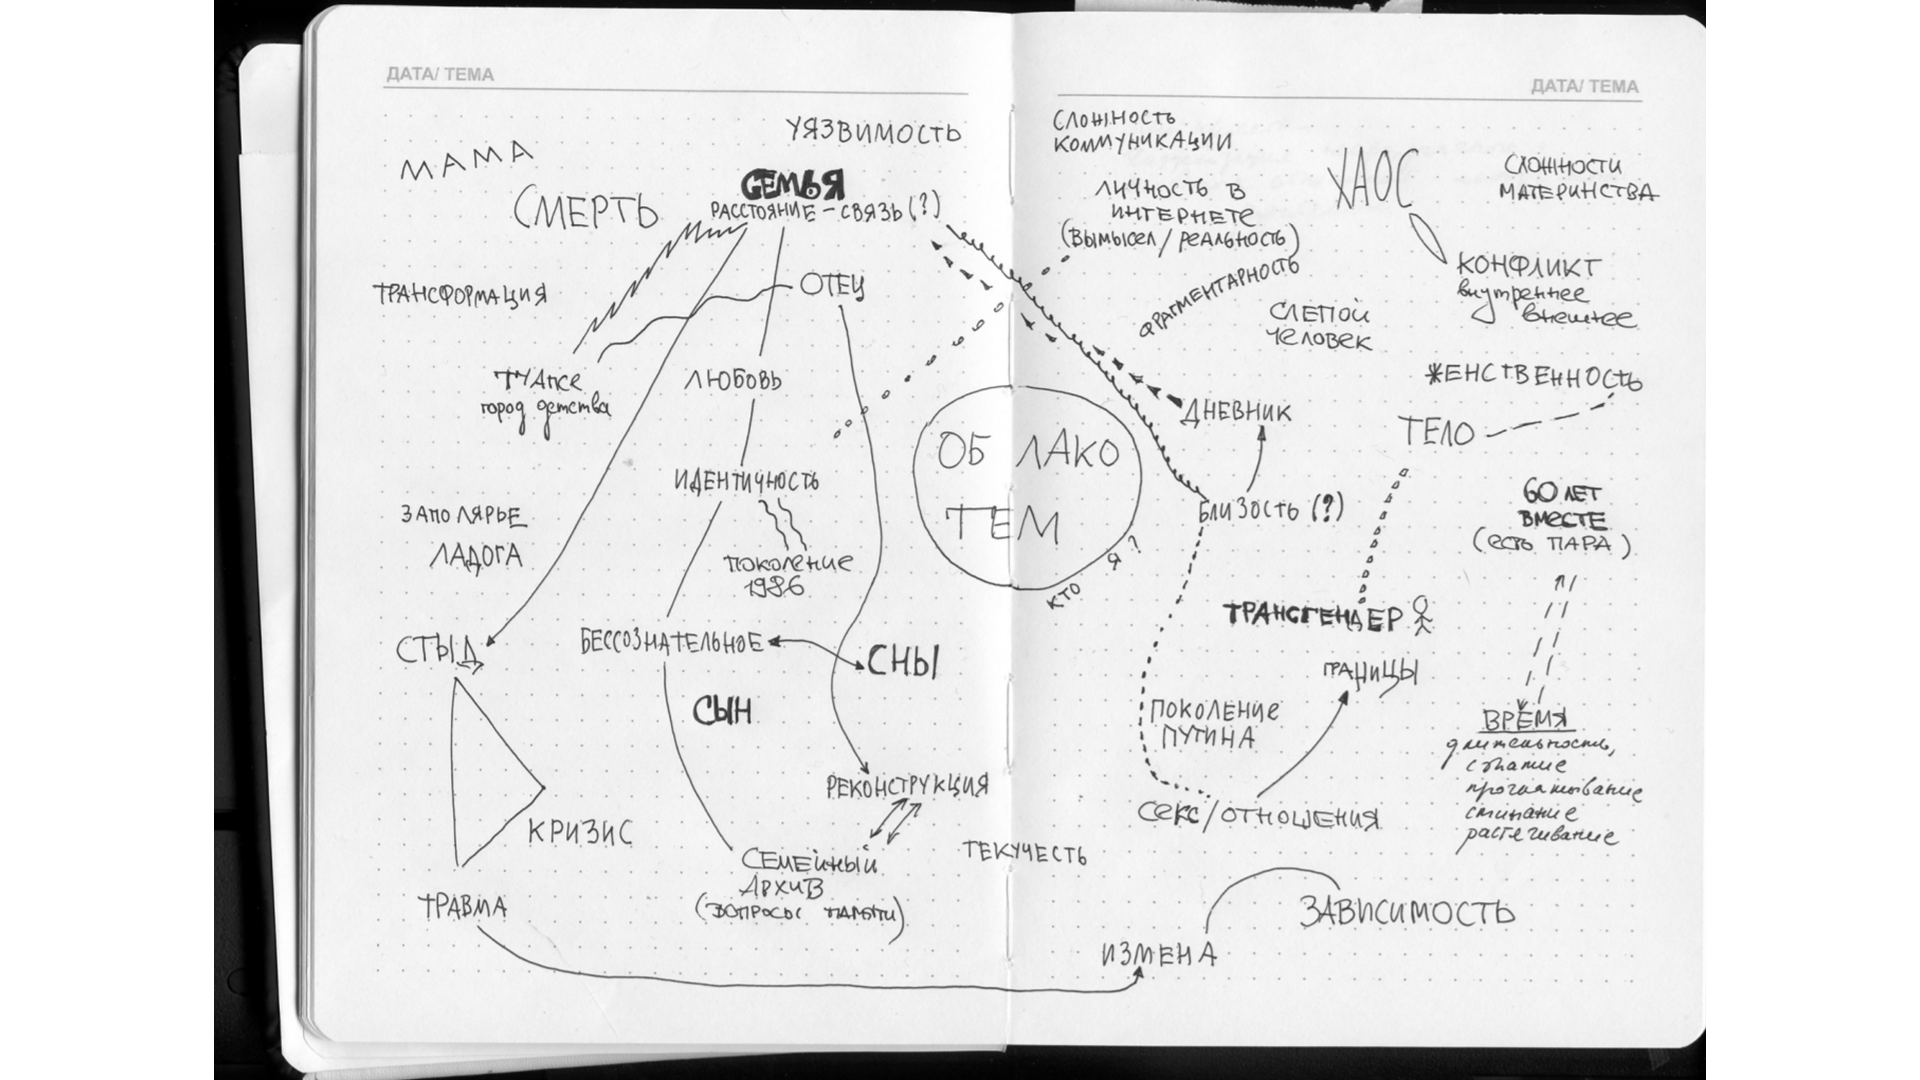 ДАТА/ ТЕМА
УЯЗВИМОСТЬ
МАМА
СЕМЬЯ
СМЕРТЬ
РАССТОЯНИЕ – СВЯЗЬ (?)
ОТЕЦ
ТРАНСФОРМАЦИЯ
ТУАПСЕ
город детства
ЛЮБОВЬ
ИДЕНТИЧНОСТЬ
ЗАПОЛЯРЬЕ
ЛАДОГА
ПОКОЛЕНИЕ
1986
СТЫД
БЕССОЗНАТЕЛЬНОЕ
СНЫ
СЫН
РЕКОНСТРУКЦИЯ
КРИЗИС
СЕМЕЙНЫЙ
АРХИВ
(ВОПРОСЫ ПАМЯТИ)
ТРАВМА
ОБЛАКО
ТЕМ
КТО Я?
ДАТА/ ТЕМА
СЛОЖНОСТЬ
КОММУНИКАЦИИ
ЛИЧНОСТЬ В
ИНТЕРНЕТЕ
(ВЫМЫСЕЛ / РЕАЛЬНОСТЬ)
ХАОС
СЛОЖНОСТИ
МАТЕРИНСТВА
ФРАГМЕНТАРНОСТЬ
КОНФЛИКТ
внутреннее
внешнее
СЛЕПОЙ
ЧЕЛОВЕК
ЖЕНСТВЕННОСТЬ
ДНЕВНИК
ТЕЛО
БЛИЗОСТЬ (?)
60 ЛЕТ
ВМЕСТЕ
(ЕСТЬ ПАРА)
ТРАНСГЕНДЕР
ГРАНИЦЫ
ПОКОЛЕНИЕ
ПУТИНА
ВРЕМЯ
длительность,
сжатие
проглатывание
сминание
растягивание
СЕКС/ОТНОШЕНИЯ
ТЕКУЧЕСТЬ
ЗАВИСИМОСТЬ
ИЗМЕНА